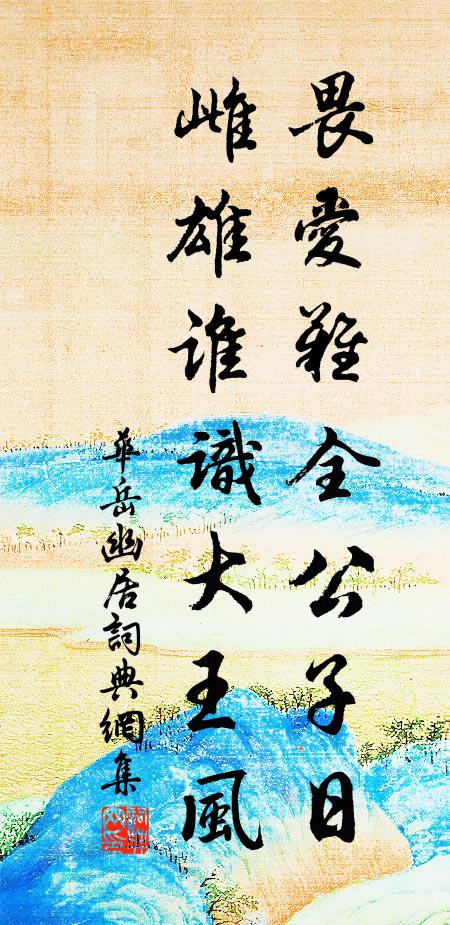 畏愛難全公子日
雌雄誰識大王風
華岳幽居詞典網集